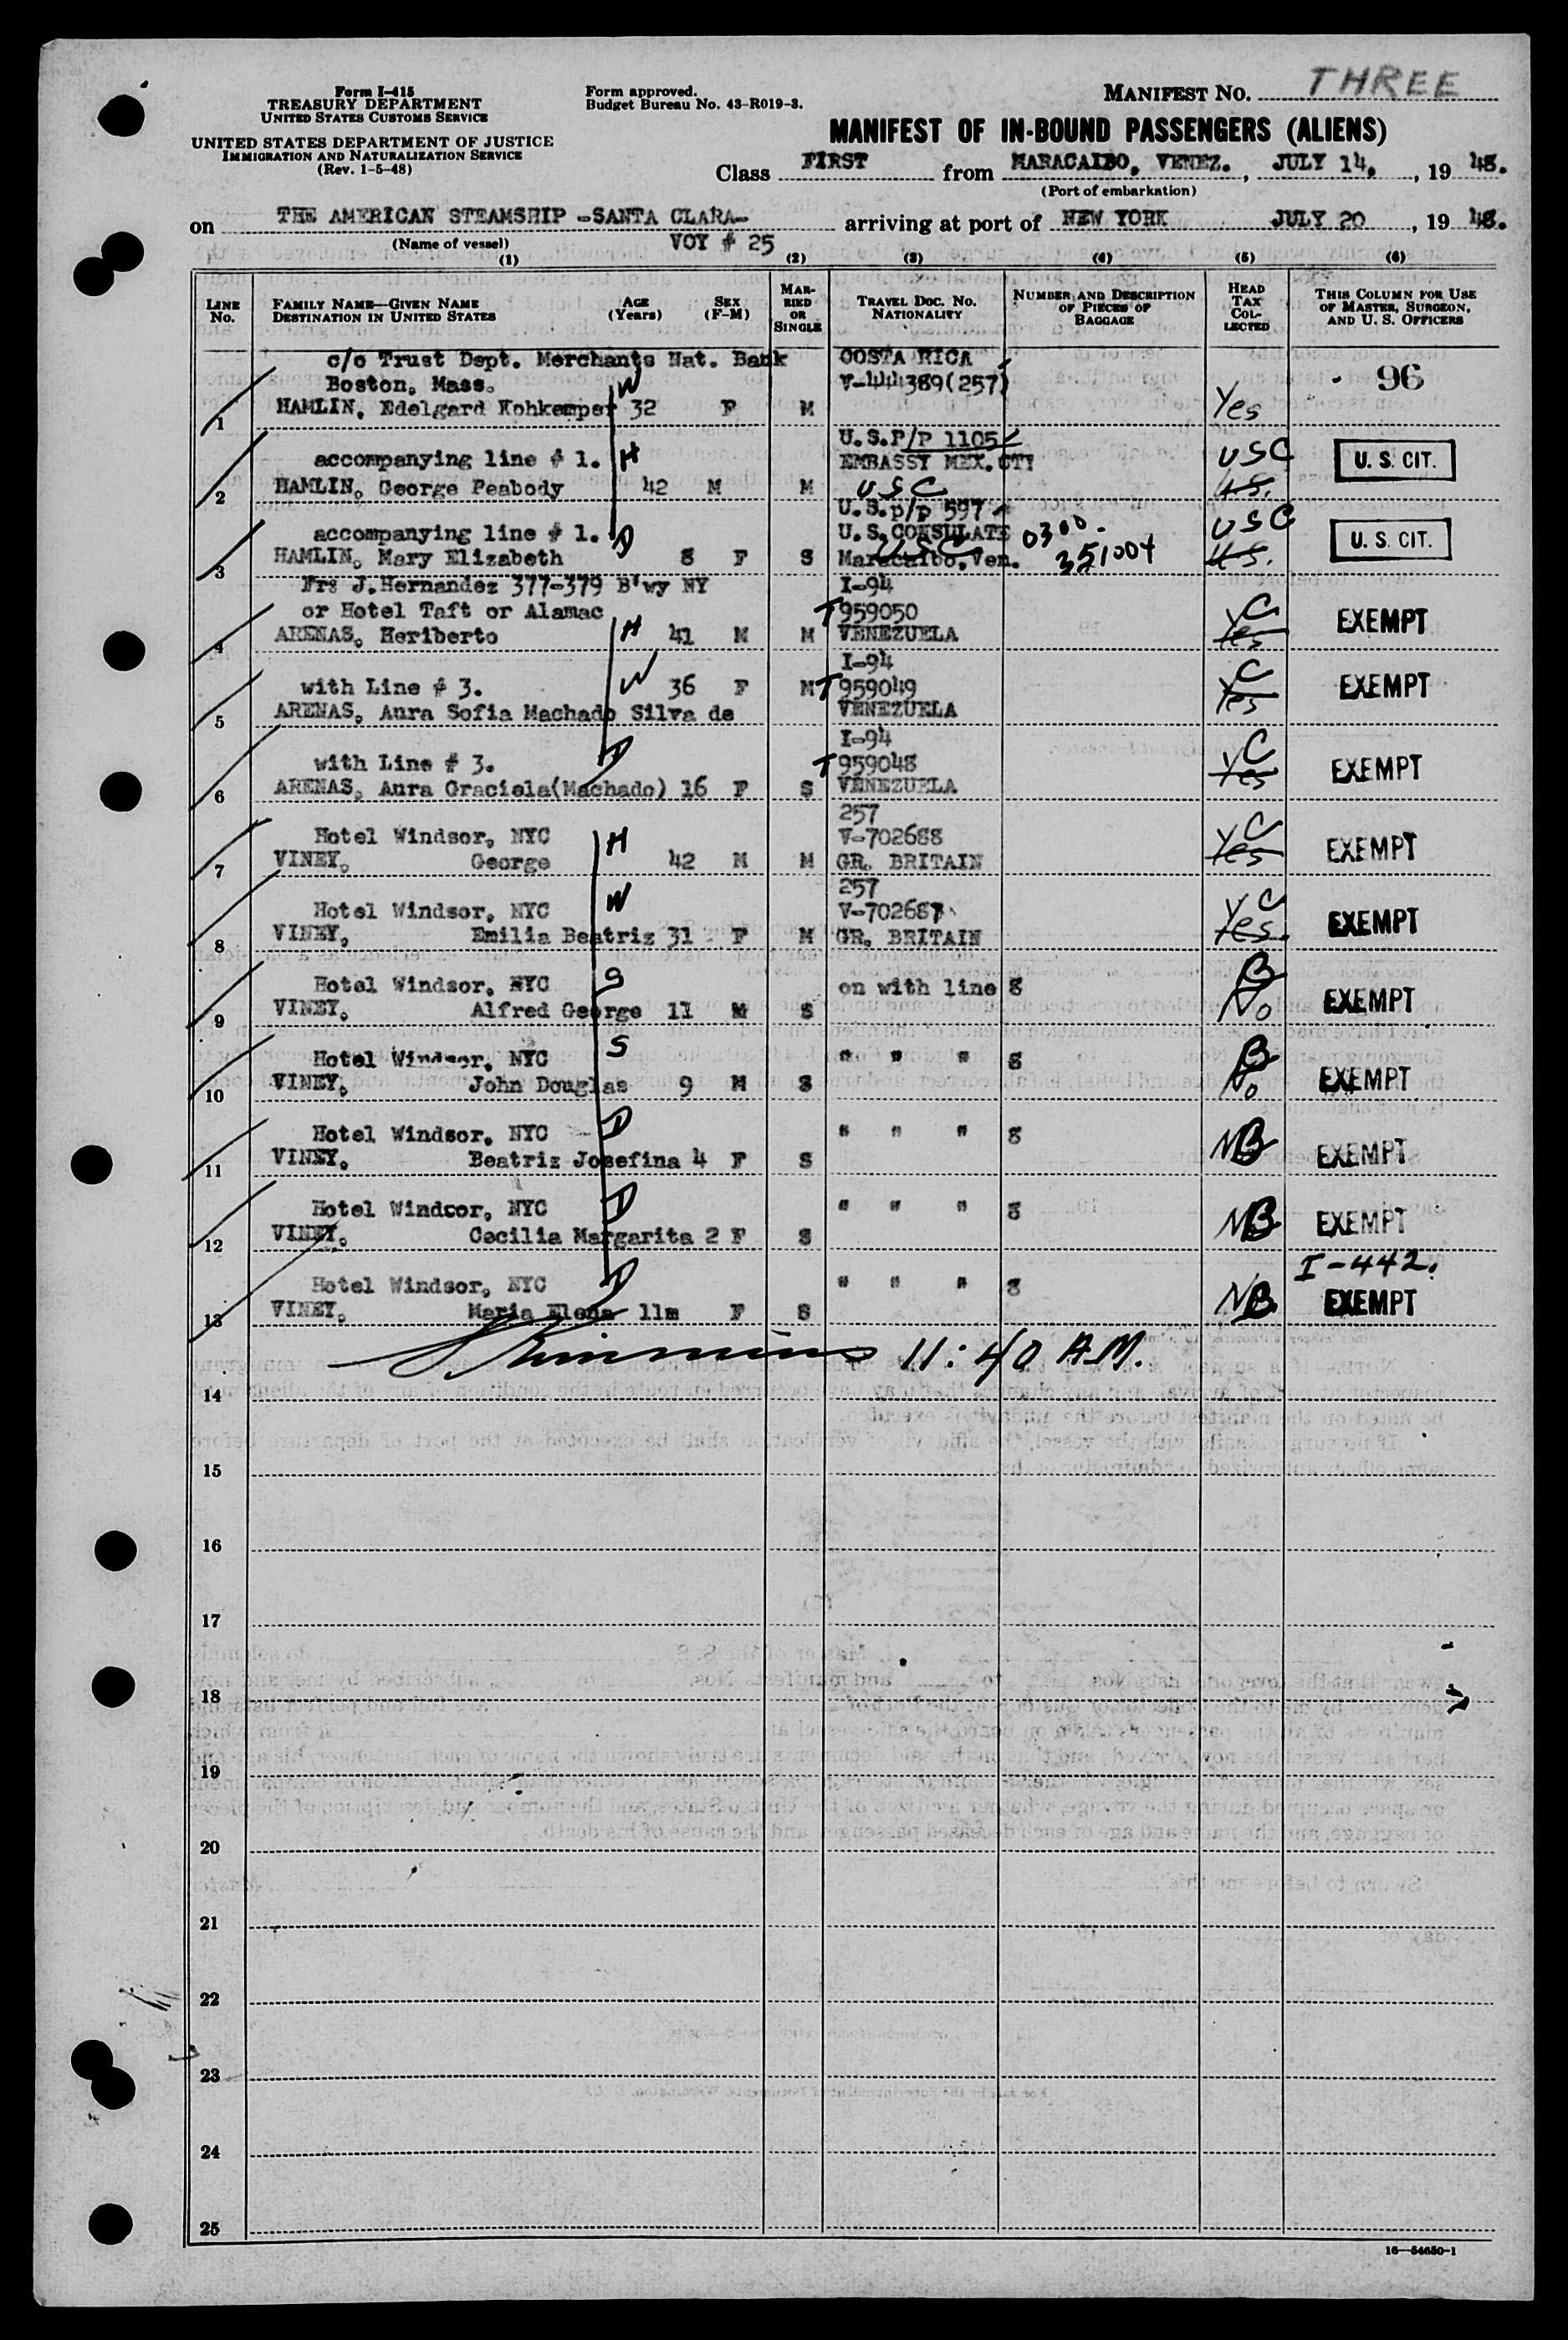 Form I-415
TREASURY DEPARTMENT
UNITED STATES CUSTOMS SERVICE
UNITED STATES DEPARTMENT OF JUSTICE
IMMIGRATION AND NATURALIZATION SERVICE
(Rev. 1-5-48)
Form approved.
Budget Bureau No. 43-R019-3.
MANIFEST NO. THREE
MANIFEST OF IN-BOUND PASSENGERS (ALIENS)
Class FIRST from MARACAIBO, VENEZ., JULY 14, , 19 48.
(Port of embarkation)
on THE AMERICAN STEAMSHIP -SANTA CLARA- arriving at port of NEW YORK JULY 20 , 19 48.
(Name of vessel) VOY # 25
(1) (2) (3) (4) (5) (6)
LINE No. FAMILY NAME—GIVEN NAME DESTINATION IN UNITED STATES AGE (Years) SEX (F-M) MARRIED OR SINGLE TRAVEL DOC. NO. NATIONALITY NUMBER AND DESCRIPTION OF PIECES OF BAGGAGE HEAD TAX COLLECTED THIS COLUMN FOR USE OF MASTER, SURGEON, AND U. S. OFFICERS
c/o Trust Dept. Merchants Nat. Bank COSTA RICA
Boston, Mass. W V-444389(257) 96
1 HAMLIN, Edelgard Kohkemper 32 F M Yes
U.S.P/P 1105
accompanying line # 1. H EMBASSY MEX.CTY USC U. S. CIT.
2 HAMLIN, George Peabody 42 M M USC U.S.
U.S.p/p 597
accompanying line # 1. D U.S.CONSULATE 0300- USC U. S. CIT.
3 HAMLIN, Mary Elizabeth 8 F S Maracaibo,Ven. USC 351004 U.S.
Frs J.Hernandez 377-379 B'wy NY I-94
or Hotel Taft or Alamac T 959050 C EXEMPT
4 ARENAS, Heriberto H 41 M M VENEZUELA Yes
I-94
with Line # 3. W 36 F M T 959049 C EXEMPT
5 ARENAS, Aura Sofia Machado Silva de VENEZUELA Yes
I-94
with Line # 3. D T 959048 C EXEMPT
6 ARENAS, Aura Graciela(Machado) 16 F S VENEZUELA Yes
257
Hotel Windsor, NYC H V-702688 C EXEMPT
7 VINEY, George 42 M M GR. BRITAIN Yes
257
Hotel Windsor, NYC W V-702687 C EXEMPT
8 VINEY, Emilia Beatriz 31 F M GR. BRITAIN Yes.
Hotel Windsor, NYC S on with line 8 B EXEMPT
9 VINEY, Alfred George 11 M S No
Hotel Windsor, NYC S " " " 8 B EXEMPT
10 VINEY, John Douglas 9 M S No
Hotel Windsor, NYC D " " " 8 NB EXEMPT
11 VINEY, Beatriz Josefina 4 F S
Hotel Windcor, NYC D " " " 8 NB EXEMPT
12 VINEY, Cecilia Margarita 2 F S
I-442.
Hotel Windsor, NYC D " " " 8 NB EXEMPT
13 VINEY, Maria Elena 11m F S
11:40 A.M.
14
15
16
17
18
19
20
21
22
23
24
25
16—54650-1